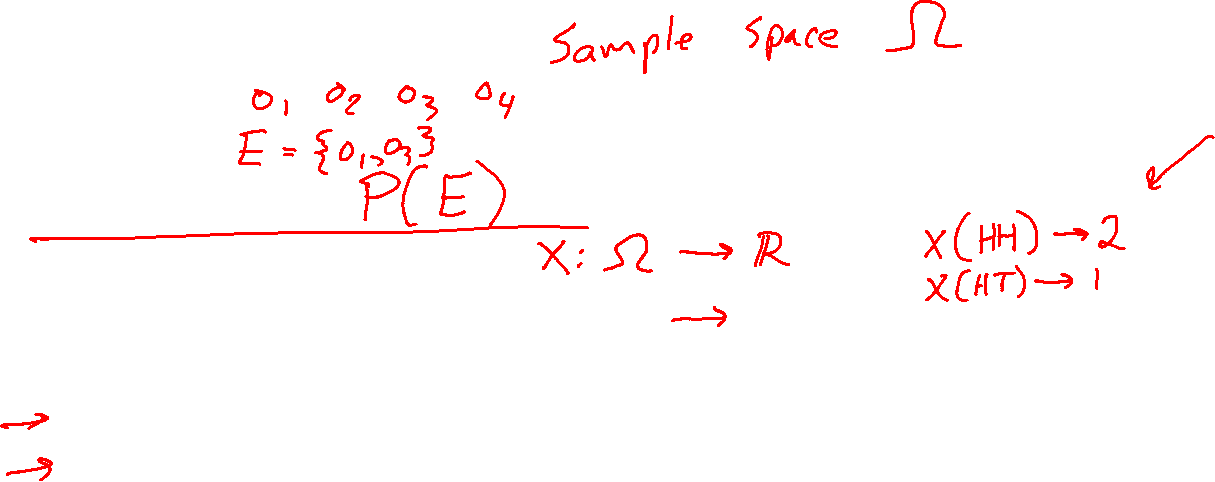 Sample Space Ω
o₁ o₂ o₃ o₄
E = {o₁, o₃}
P(E)
X: Ω → ℝ
→
X(HH) → 2
X(HT) → 1
→
→